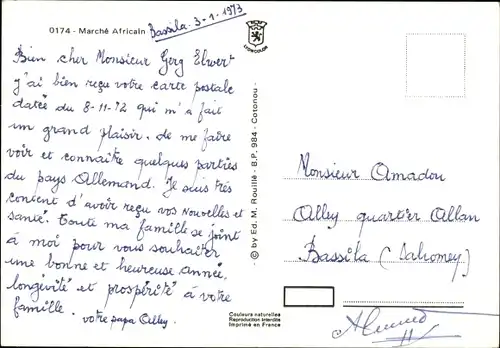 0174 - Marché Africain
Bassila 3-1-1973
LYONCOLOR
Bien cher Monsieur Gerg Elwert
j'ai bien reçu votre carte postale
datée du 8-11-72 qui m'a fait
un grand plaisir. de me faire
voir et connaître quelques parties
du pays Allemand. Je suis très
content d'avoir reçu vos Nouvelles et
santé. Toute ma famille se joint
à moi pour vous souhaiter
une bonne et heureuse année,
longivité et prospérité à votre
famille.
votre papa Alley.
© by Ed. M. Rouillé - B.P. 984 - Cotonou -
Monsieur Amadou
Alley quartier Allan
Bassila (Dahomey)
Couleurs naturelles
Reproduction interdite
Imprimé en France